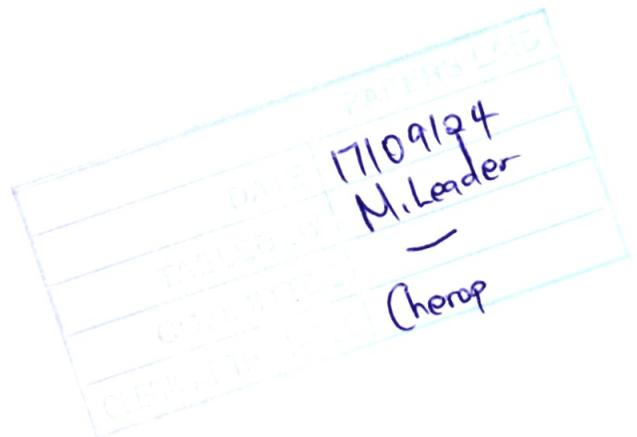 PAPERS LAID
DATE 17/09/24
TABLED BY M. Leader
COMMITTEE –
CLERK AT THE TABLE Cherop